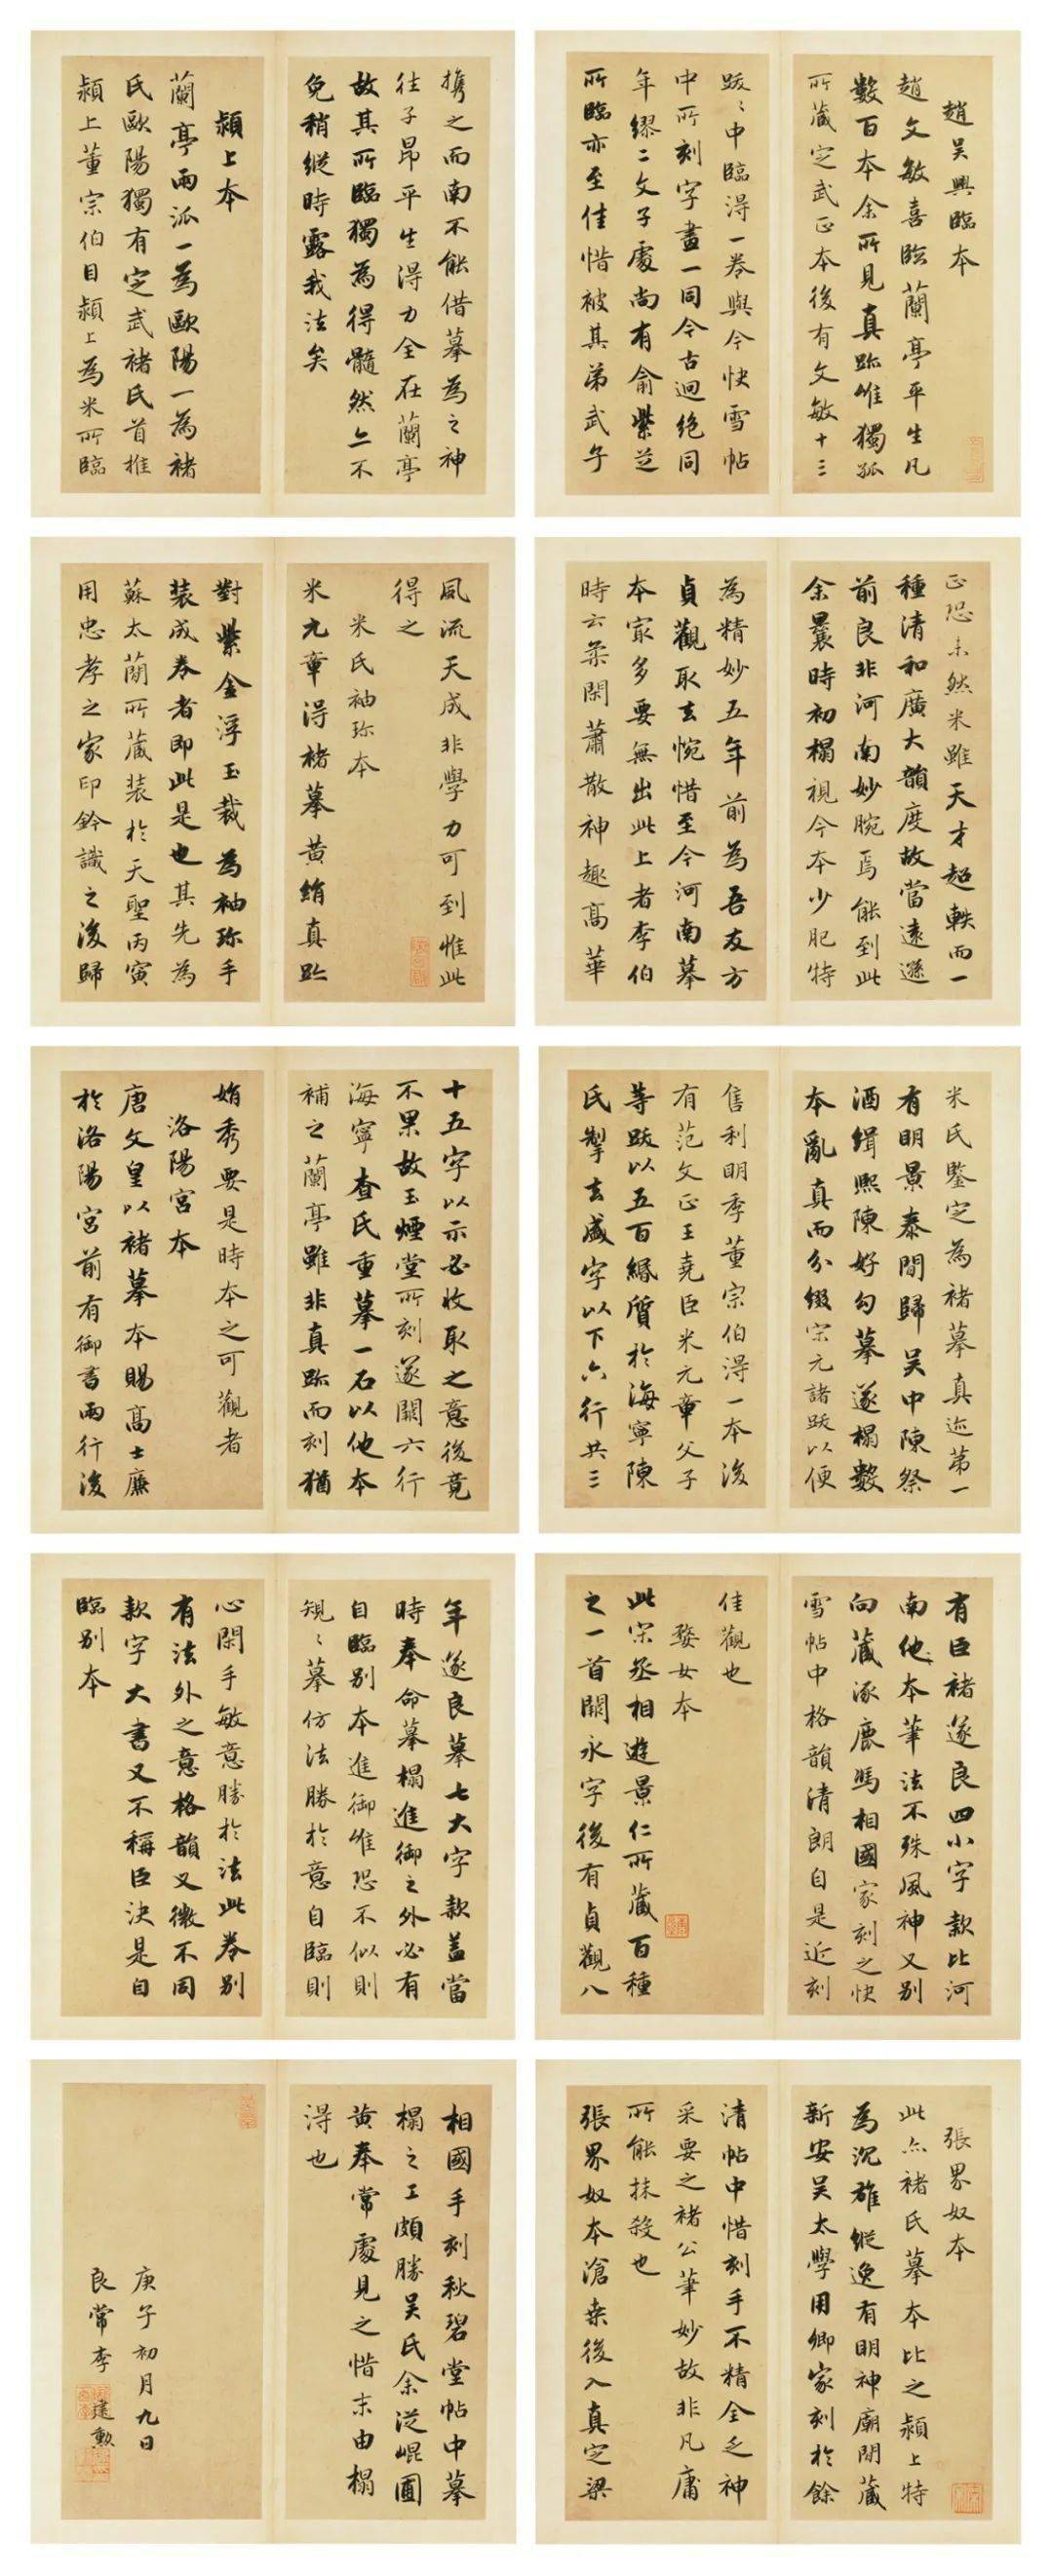 趙吳興臨本
趙文敏喜臨蘭亭平生凡
數百本余所見真跡惟獨孤
所藏定武正本後有文敏十三
跋跋中臨得一卷與今快雪帖
中所刻字畫一同今古迥絕同
年繆二文子處尚有俞紫芝
所臨亦至佳惜被其弟武子
攜之而南不能借摹為之神
往子昂平生得力全在蘭亭
故其所臨獨為得髓然亦不
免稍縱時露我法矣
潁上本
蘭亭兩派一為歐陽一為褚
氏歐陽獨有定武褚氏首推
潁上董宗伯目潁上為米所臨
正恐未然米雖天才超軼而一
種清和廣大韻度故當遠遜
前良非河南妙腕焉能到此
余曩時初榻視今本少肥特
為精妙五年前為吾友方
貞觀取去惋惜至今河南摹
本最多要無出此上者李伯
時云柔閑蕭散神趣高華
風流天成非學力可到惟此
得之
米氏袖珍本
米元章得褚摹黃絹真跡
對紫金浮玉裁為袖珍手
裝成卷者即此是也其先為
蘇太簡所藏裝於天聖丙寅
用忠孝之家印鈐識之後歸
米氏鑒定為褚摹真跡第一
有明景泰間歸吳中陳祭
酒緝熙陳好勾摹遂榻數
本亂真而分綴宋元諸跋以便
售利明季董宗伯得一本後
有范文正王堯臣米元章父子
等跋以五百緡質於海寧陳
氏掣去盛字以下六行共三
十五字以示必收取之意後竟
不果故玉煙堂所刻遂闕六行
海寧查氏重摹一石以他本
補之蘭亭雖非真跡而刻猶
娟秀要是時本之可觀者
洛陽宮本
唐文皇以褚摹本賜高士廉
於洛陽宮前有御書兩行後
有臣褚遂良四小字款比河
南他本筆法不殊風神又別
向藏涿鹿馮相國家刻之快
雪帖中格韻清朗自是近刻
佳觀也
婺女本
此宋丞相遊景仁所藏百種
之一首闕永字後有貞觀八
年遂良摹七大字款蓋當
時奉命摹榻進御之外必有
自臨別本進御惟恐不似則
規規摹仿法勝於意自臨則
心閑手敏意勝於法此卷別
有法外之意格韻又微不同
款字大書又不稱臣決是自
臨別本
張界奴本
此亦褚氏摹本比之潁上特
為沉雄縱逸有明神廟間藏
新安吳太學用卿家刻於餘
清帖中惜刻手不精全乏神
采要之褚公筆妙故非凡庸
所能抹殺也
張界奴本滄桑後入真定梁
相國手刻秋碧堂帖中摹
榻之工頗勝吳氏余從崐圃
黃奉常處見之惜未由榻
得也
庚子初月九日
良常李建勲